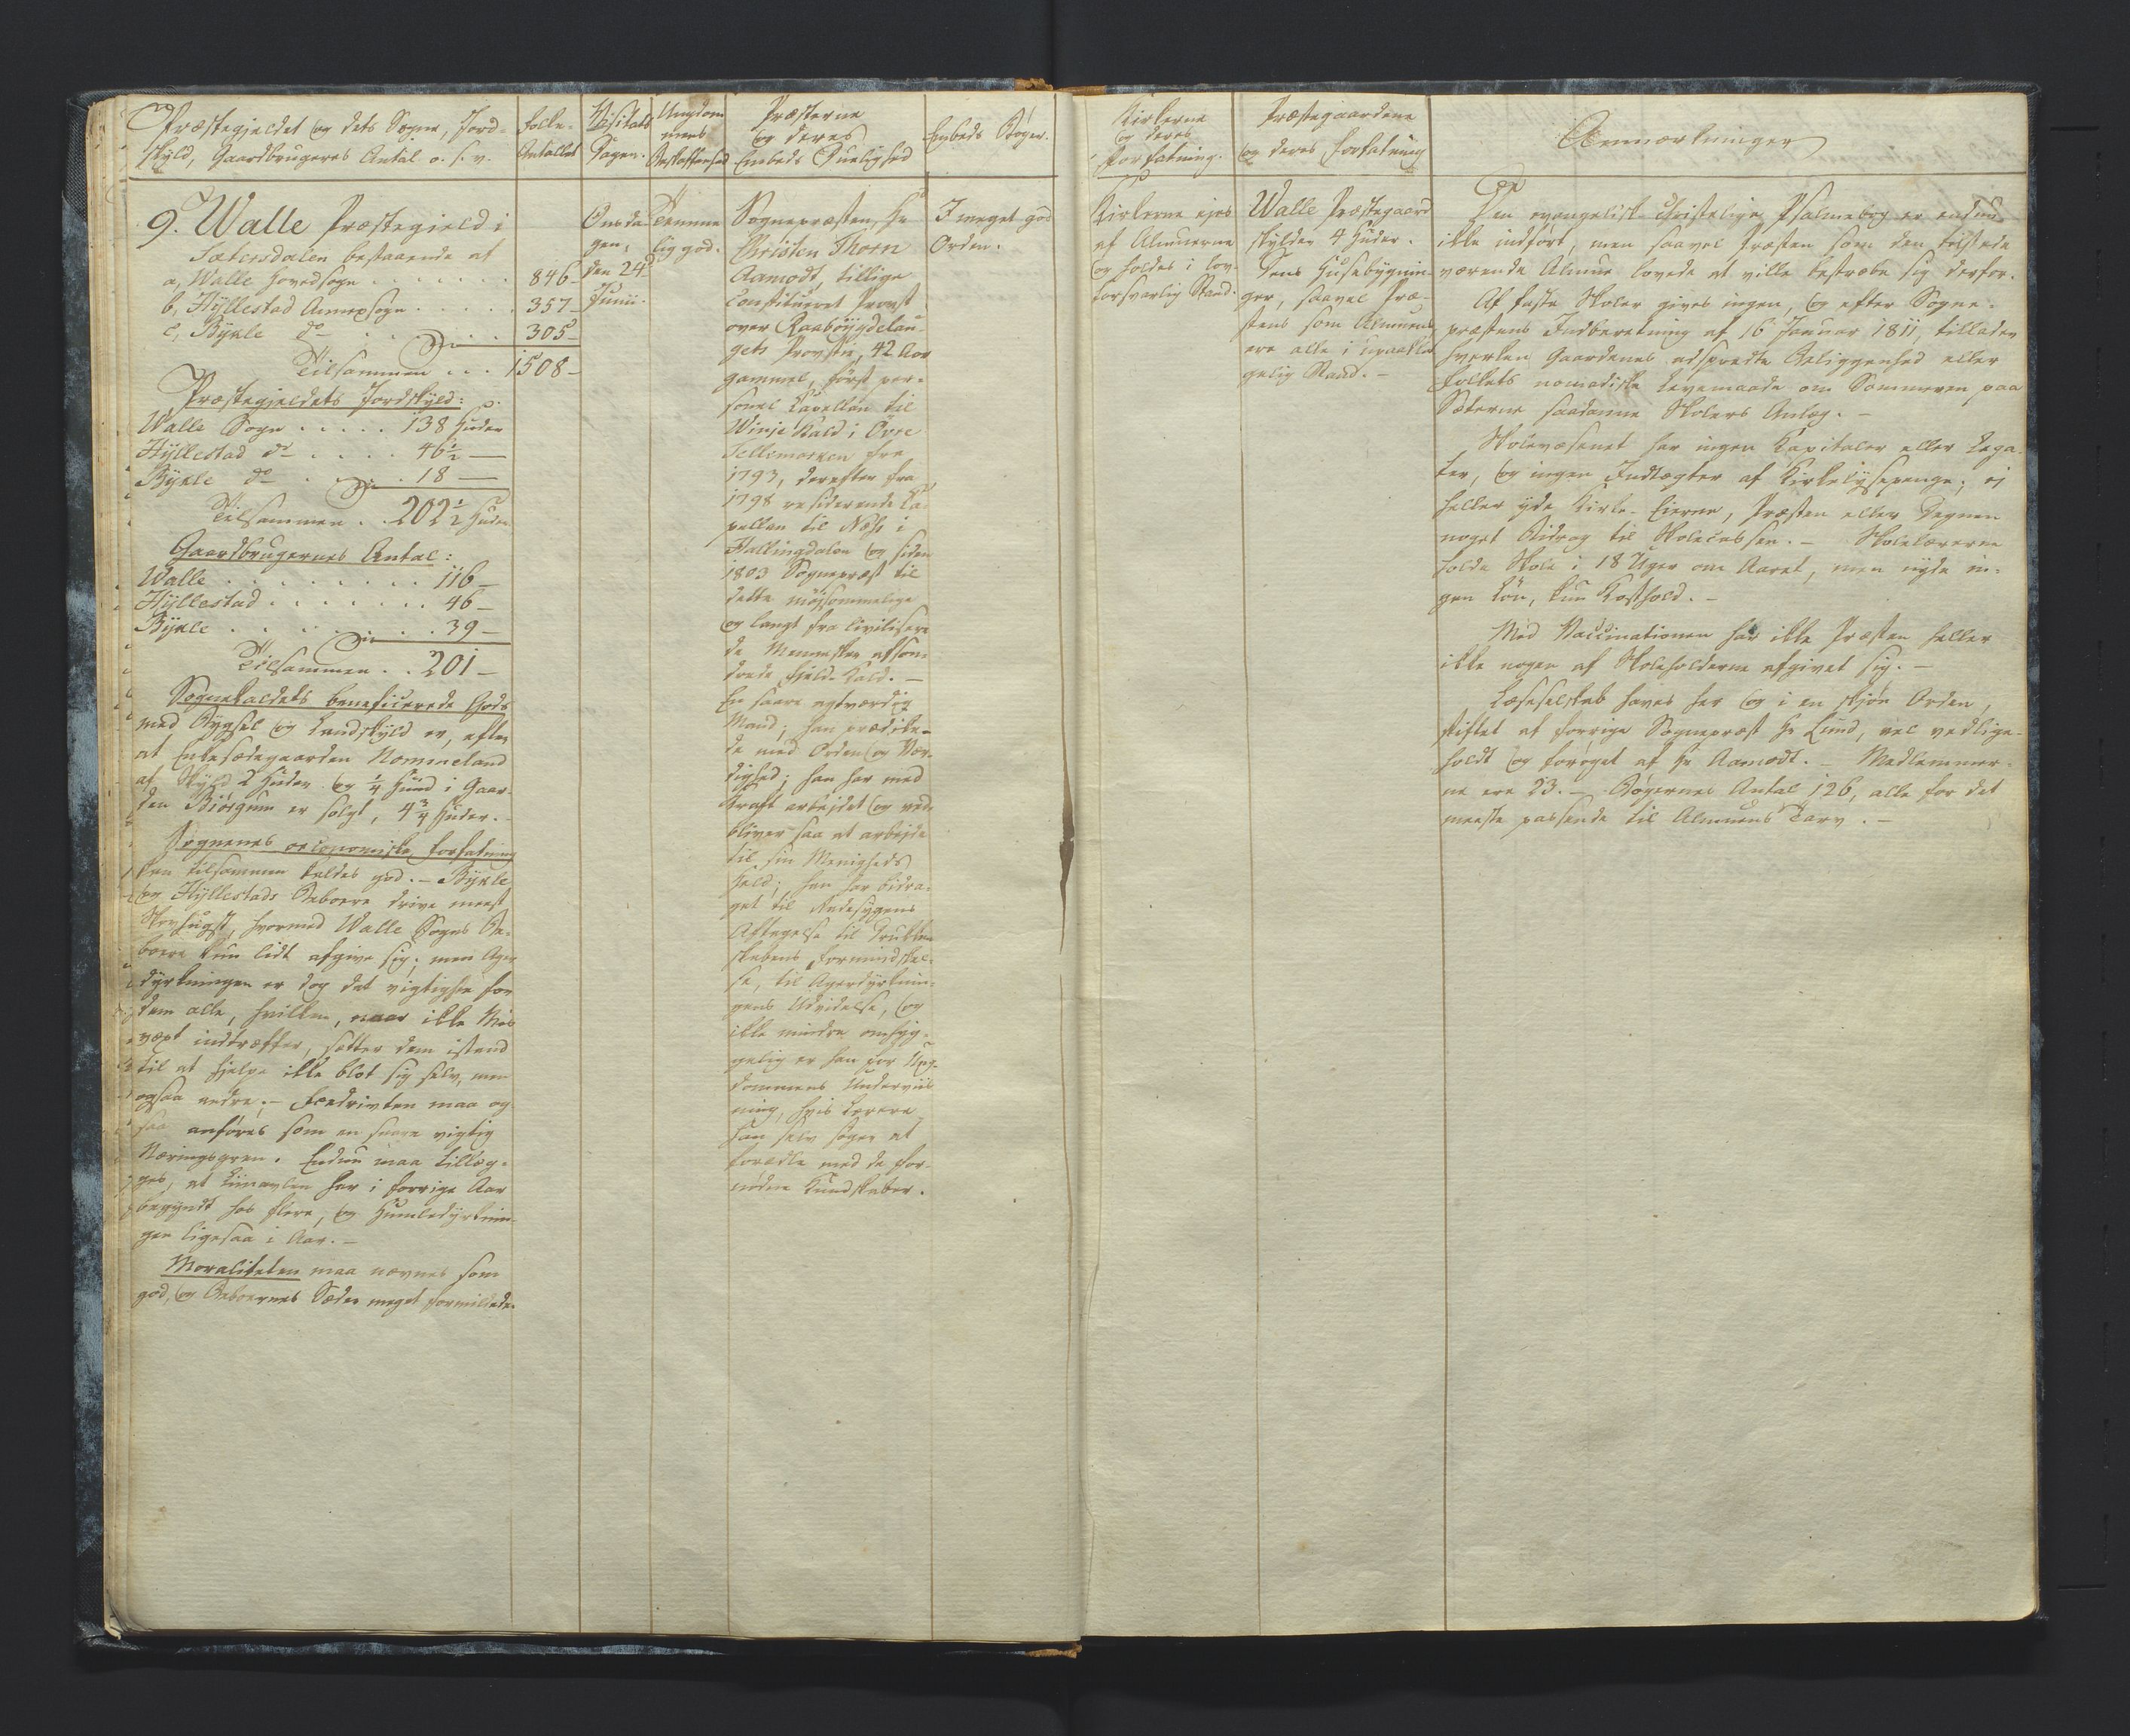 Præstegjeldet og dets Sogne, Jord-
skyld, Gaardbrugeres Antal o. s. v.
Folke-
Antallet
Visitats
Dagen.
Ungdom-
mens
Beskaffenhed
Præsterne
og deres
Embeds Duelighed
Embeds Bøger.
Kirkerne
og deres
Forfatning.
Præstegaardene
og deres Forfatning
Anmærkninger
9. Walle Præstegield i
Sætersdalen bestaaende af
a, Walle Hovedsogn . . . . . . 846 -
b, Hyllestad Annexsogn . . . . . 357 -
c, Bykle do . . . . . 305 -
Tilsammen . . . 1508 -
Præstegjeldets Jordskyld:
Walle Sogn . . . . . 138 Huder
Hyllestad do . . . . 46 1/2 —
Bykle do . . . . 18 —
Tilsammen . . 202 1/2 Huder
Gaardbrugernes Antal:
Walle . . . . . . . . . 116 -
Hyllestad . . . . . . . 46 -
Bykle . . . . . . . . 39 -
Tilsammen . . 201 -
Sognekaldets beneficerede Gods
med Bygsel og Landskyld er, efter
at Enkesædegaarden Nommeland
af Skyld 2 Huder og 1/4 Hud i Gaar-
den Biørgum er solgt, 4 3/4 Huder. -
Sognenes oeconomiske Forfatning
kan tilsammen kaldes god. - Bykle
og Hyllestads Beboere drive meest
Skovhugst, hvormed Walle Sogns Be-
boere kun lidt afgive sig; men Ager-
dyrkningen er dog det vigtigste for
dem alle, hvilken, naar ikke Mis-
vext indtræffer, sætter dem istand
til at hjelpe ikke blot sig selv, men
ogsaa andre; - Fædriften maa og-
saa anføres som en saare vigtig
Næringsgren. Endnu maa tillæg-
ges, at Linavlen her i forrige Aar
begyndt hos flere, og Humledyrknin-
gen ligesaa i Aar. -
Moraliteten maa nævnes som
god, og Beboernes Sæder meget formildede.
Onsda-
gen,
den 24de
Junii.
Temme-
lig god.
Sognepræsten, Hr
Christen Thorn
Aamodt, tillige
Constitueret Provst
over Raabøygdelau-
gets Provstie, 42 Aar
gammel, først per-
sonel Kapellan til
Winje Kald i Øvre
Tellemarken fra
1793, derefter fra
1798 residerende Ca-
pellan til Næss i
Hallingdalen og siden
1803 Sognepræst til
dette møjsommelige
og langt fra civilisere-
de Mennesker afson-
drede Fjeld-Kald. -
En saare agtværdig
Mand; han prædike-
de med Orden og Vær-
dighed; han har med
Kraft arbejdet og ved-
bliver saa at arbejde
til sin Menigheds
Held; han har bidra-
get til Radesygens
Aftagelse til Drukken-
skabens Formindskel-
se, til Agerdyrknin-
gens Udvidelse, og
ikke mindre omhyg-
gelig er han for Ung-
dommens Underviis-
ning, hvis Lærere
han selv søger at
forædle med de for-
nødne Kundskaber.
I meget god
Orden.
Kirkerne ejes
af Almuerne
og holdes i lov-
forsvarlig Stand.
Walle Præstegaard
skylder 4 Huder.
Dens Husebygnin-
ger, saavel Præ-
stens som Almuens
ere alle i upaakla-
gelig Stand. -
Den evangelisk-christelige Psalmebog er endnu
ikke indført, men saavel Præsten som den tilstede
værende Almue lovede at ville bestræbe sig derfor.
Af faste Skoler gives ingen, og efter Sogne-
præstens Indberetning af 16 Januar 1811, tillader
hverken Gaardenes adspredte Beliggenhed eller
Folkets nomadiske Levemaade om Sommeren paa
Sæterne saadanne Skolers Anlæg. -
Skolevæsenet har ingen Kapitaler eller Lega-
ter, og ingen Indtægter af Kirkelysepenge; ej
heller yde Kirke-Eierne, Præsten eller Degnen
noget Bidrag til Skolecassen. - Skolelærerne
holde Skole i 18 Uger om Aaret, men nyde in-
gen Løn, kun Kosthold. -
Med Vaccinationen har ikke Præsten heller
ikke nogen af Skoleholderne afgivet sig. -
Læseselskab haves her og i en skjøn Orden,
stiftet af forrige Sognepræst Hr Lund, vel vedlige-
holdt og forøget af Hr Aamodt. - Medlemmer-
ne ere 23. - Bøgernes Antal 126, alle for det
meeste passende til Almuens Tarv. -